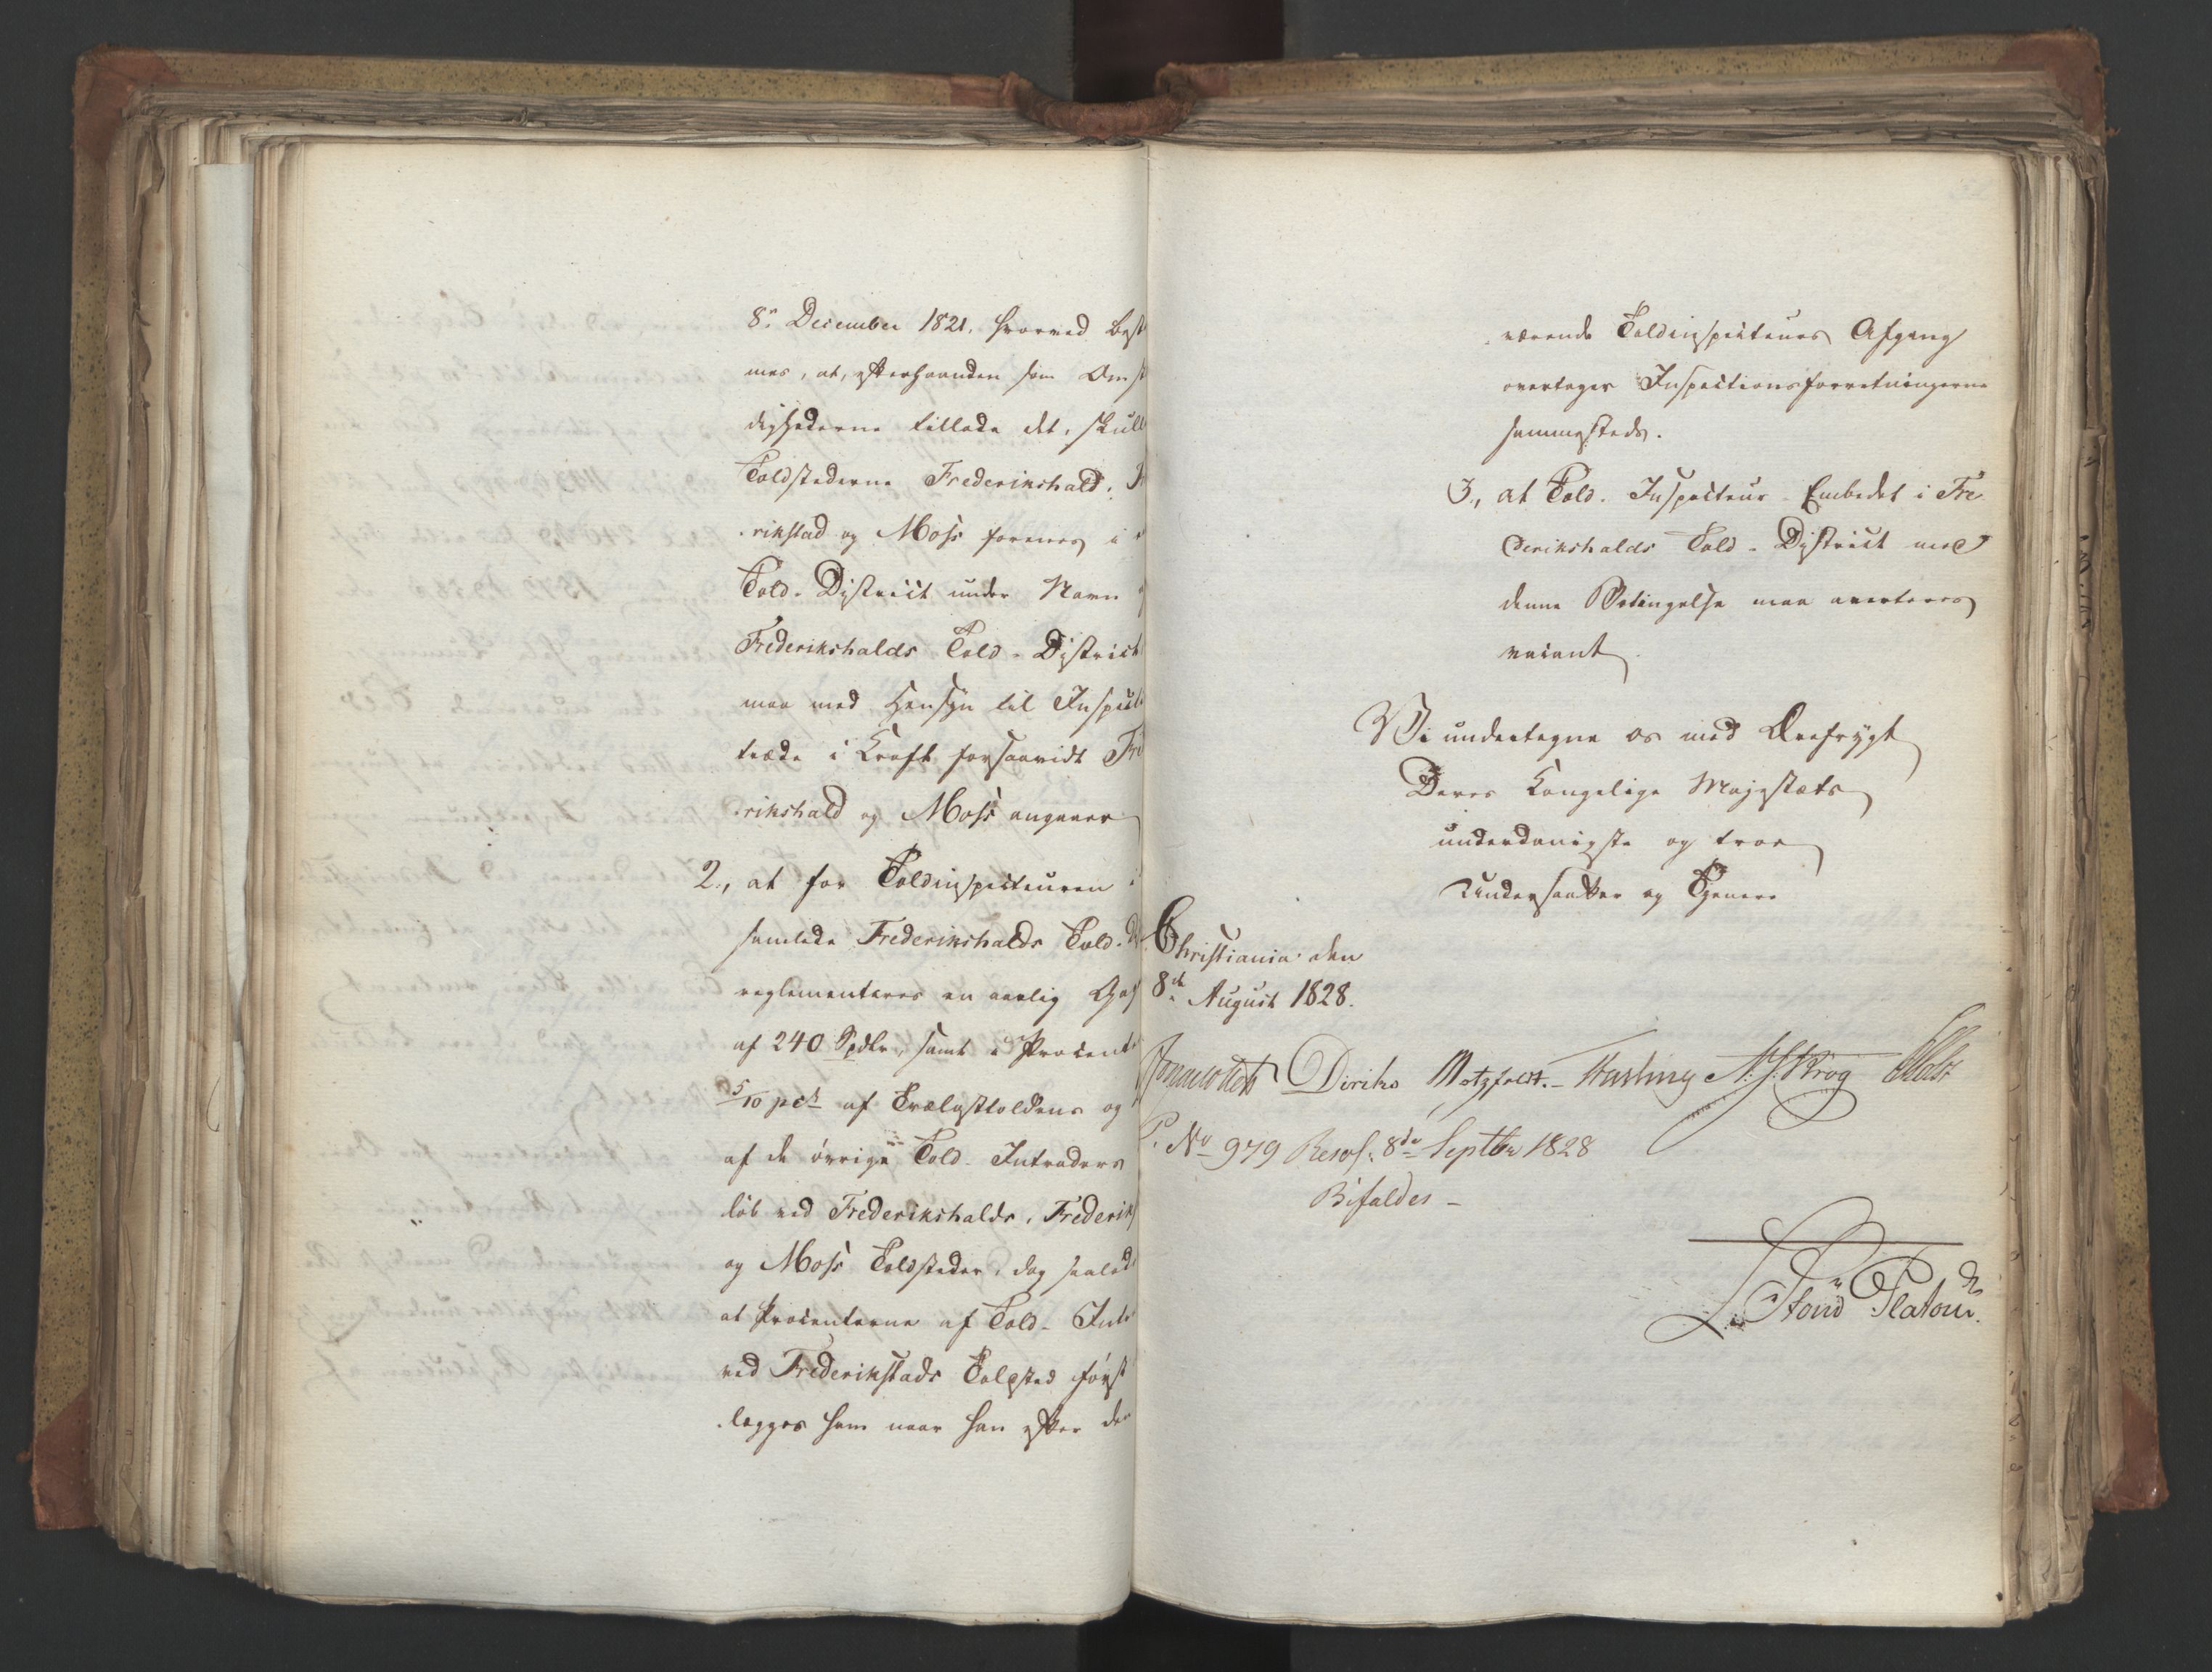 8de December 1821. hvorved best
mes, at, efterhaanden som Omst
dighederne tillade det, skulle
Toldstederne Frederikshald,
rikstad og Moss forenes i
Told-District under Navn
Frederikshalds Told-District
maa med Hensyn til Inspect
træde i Kraft forsaavidt Fre
rikshald og Moss angaaer
2., at for Toldinspecteuren i
samlede Frederikshalds Told-D
reglementeres en aarlig Gag
af 240 Spdlr, samt i Procent
5/10 pCt af Trælasttoldens og
af de øvrige Told-Intraders
løb ved Frederikshalds, Frederiks
og Moss Toldsteder, dog saaled
at Procenterne af Told-Int
ved Frederikstads Toldsted først
lægges ham naar han efter den
værende Toldinspecteurs Afgang
overtager Inspectionsforretningerne
sammesteds.
3., at Told-Inspecteur-Embedet i Fre
derikshalds Told-District med
denne Betingelse maa averteres
vacant.
Vi undertegne os med Ærefrygt
Deres Kongelige Majestæts
underdanigste og troe
Undersaatter og Tjenere
Christiania den
8de August 1828.
Diriks Motzfeldt. Fasting N. J. Krog Holst
P. No 979 Resol. 8de Septbr 1828
Bifaldes -
L. Stoud Platou